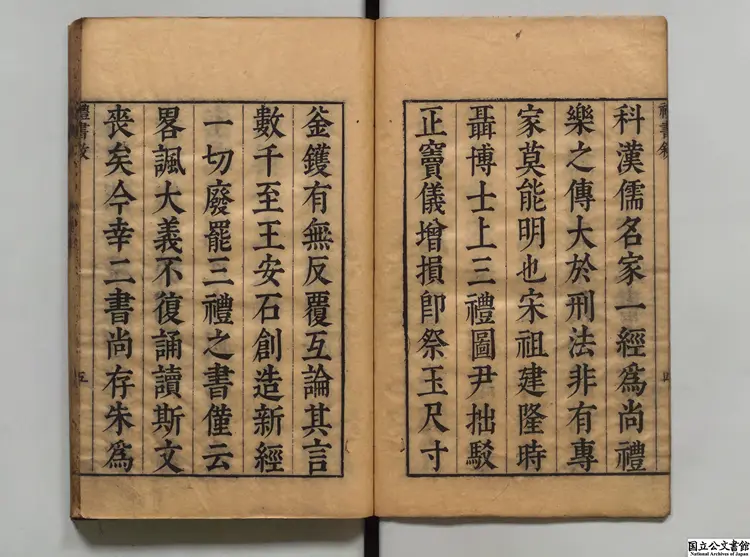 科漢儒名家一經爲尚禮
樂之傳大於刑法非有專
家莫能明也宋祖建隆時
聶博士上三禮圖尹拙駁
正竇儀增損卽祭玉尺寸
釜鑊有無反覆互論其言
數千至王安石創造新經
一切廢罷三禮之書僅云
畧諷大義不復誦讀斯文
喪矣今幸二書尚存朱爲
禮書敘
五
国立公文書館
National Archives of Japan